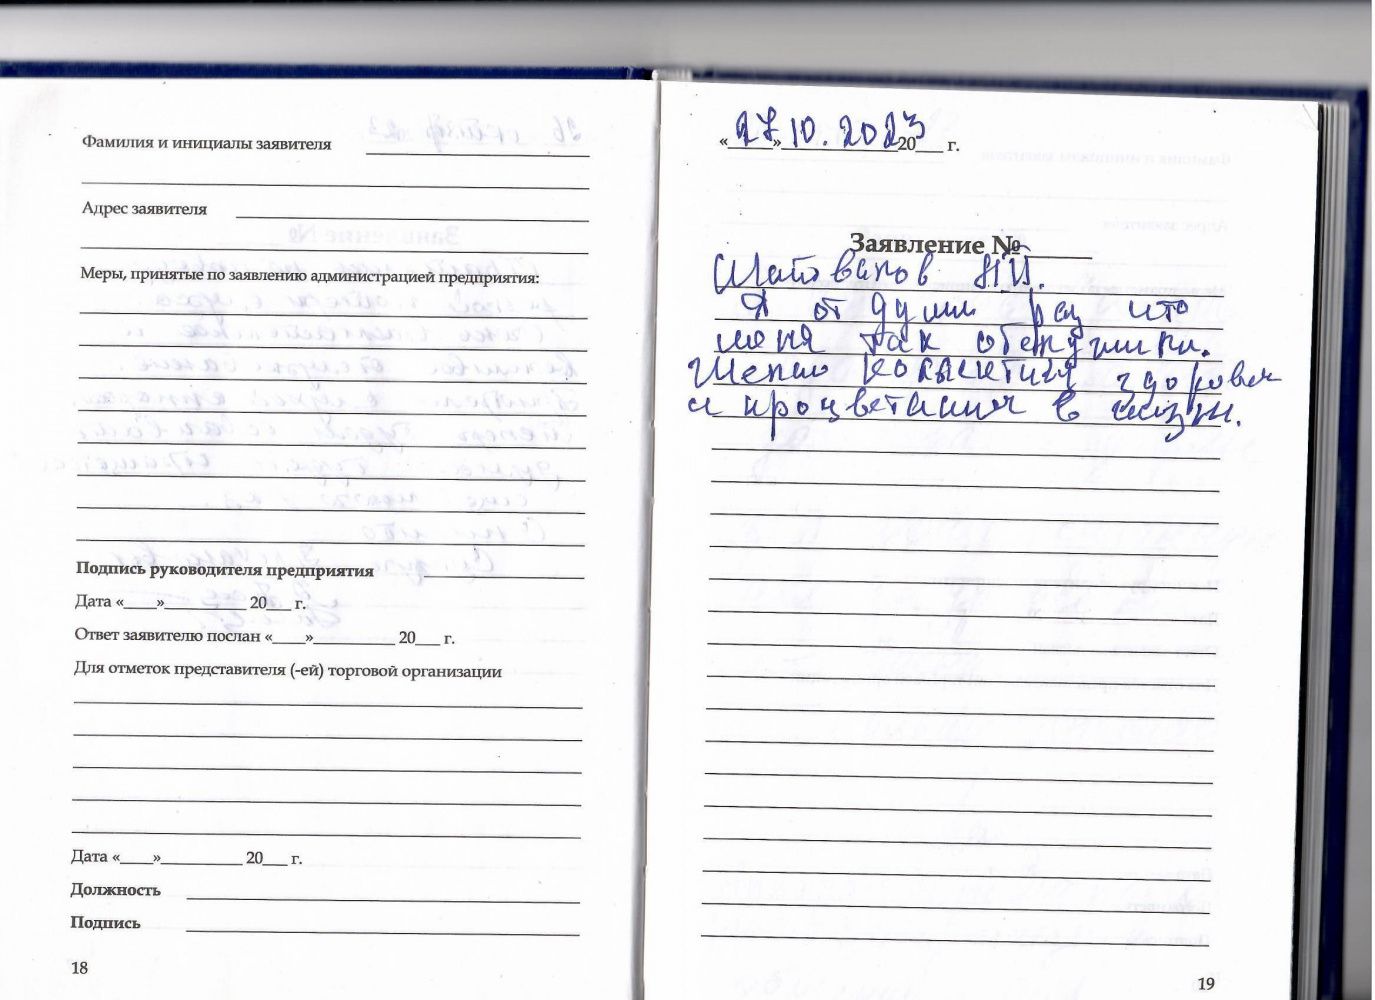 Фамилия и инициалы заявителя
Адрес заявителя
Меры, принятые по заявлению администрацией предприятия:
Подпись руководителя предприятия
Дата «____»__________ 20___ г.
Ответ заявителю послан «____»__________ 20___ г.
Для отметок представителя (-ей) торговой организации
Дата «____»__________ 20___ г.
Должность
Подпись
18
«27» 10. 2023 20___ г.
Заявление №
Н.И.
Я от души рад что
меня так обслужили.
Желаю коллектива здоровья
и процветания в жизни.
19